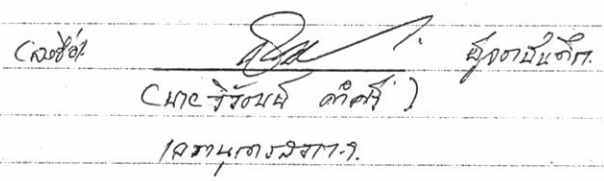 (ลงชื่อ) ผู้จดบันทึก
(นายวิรัตน์ คำศรี)
เลขานุการสภาฯ.